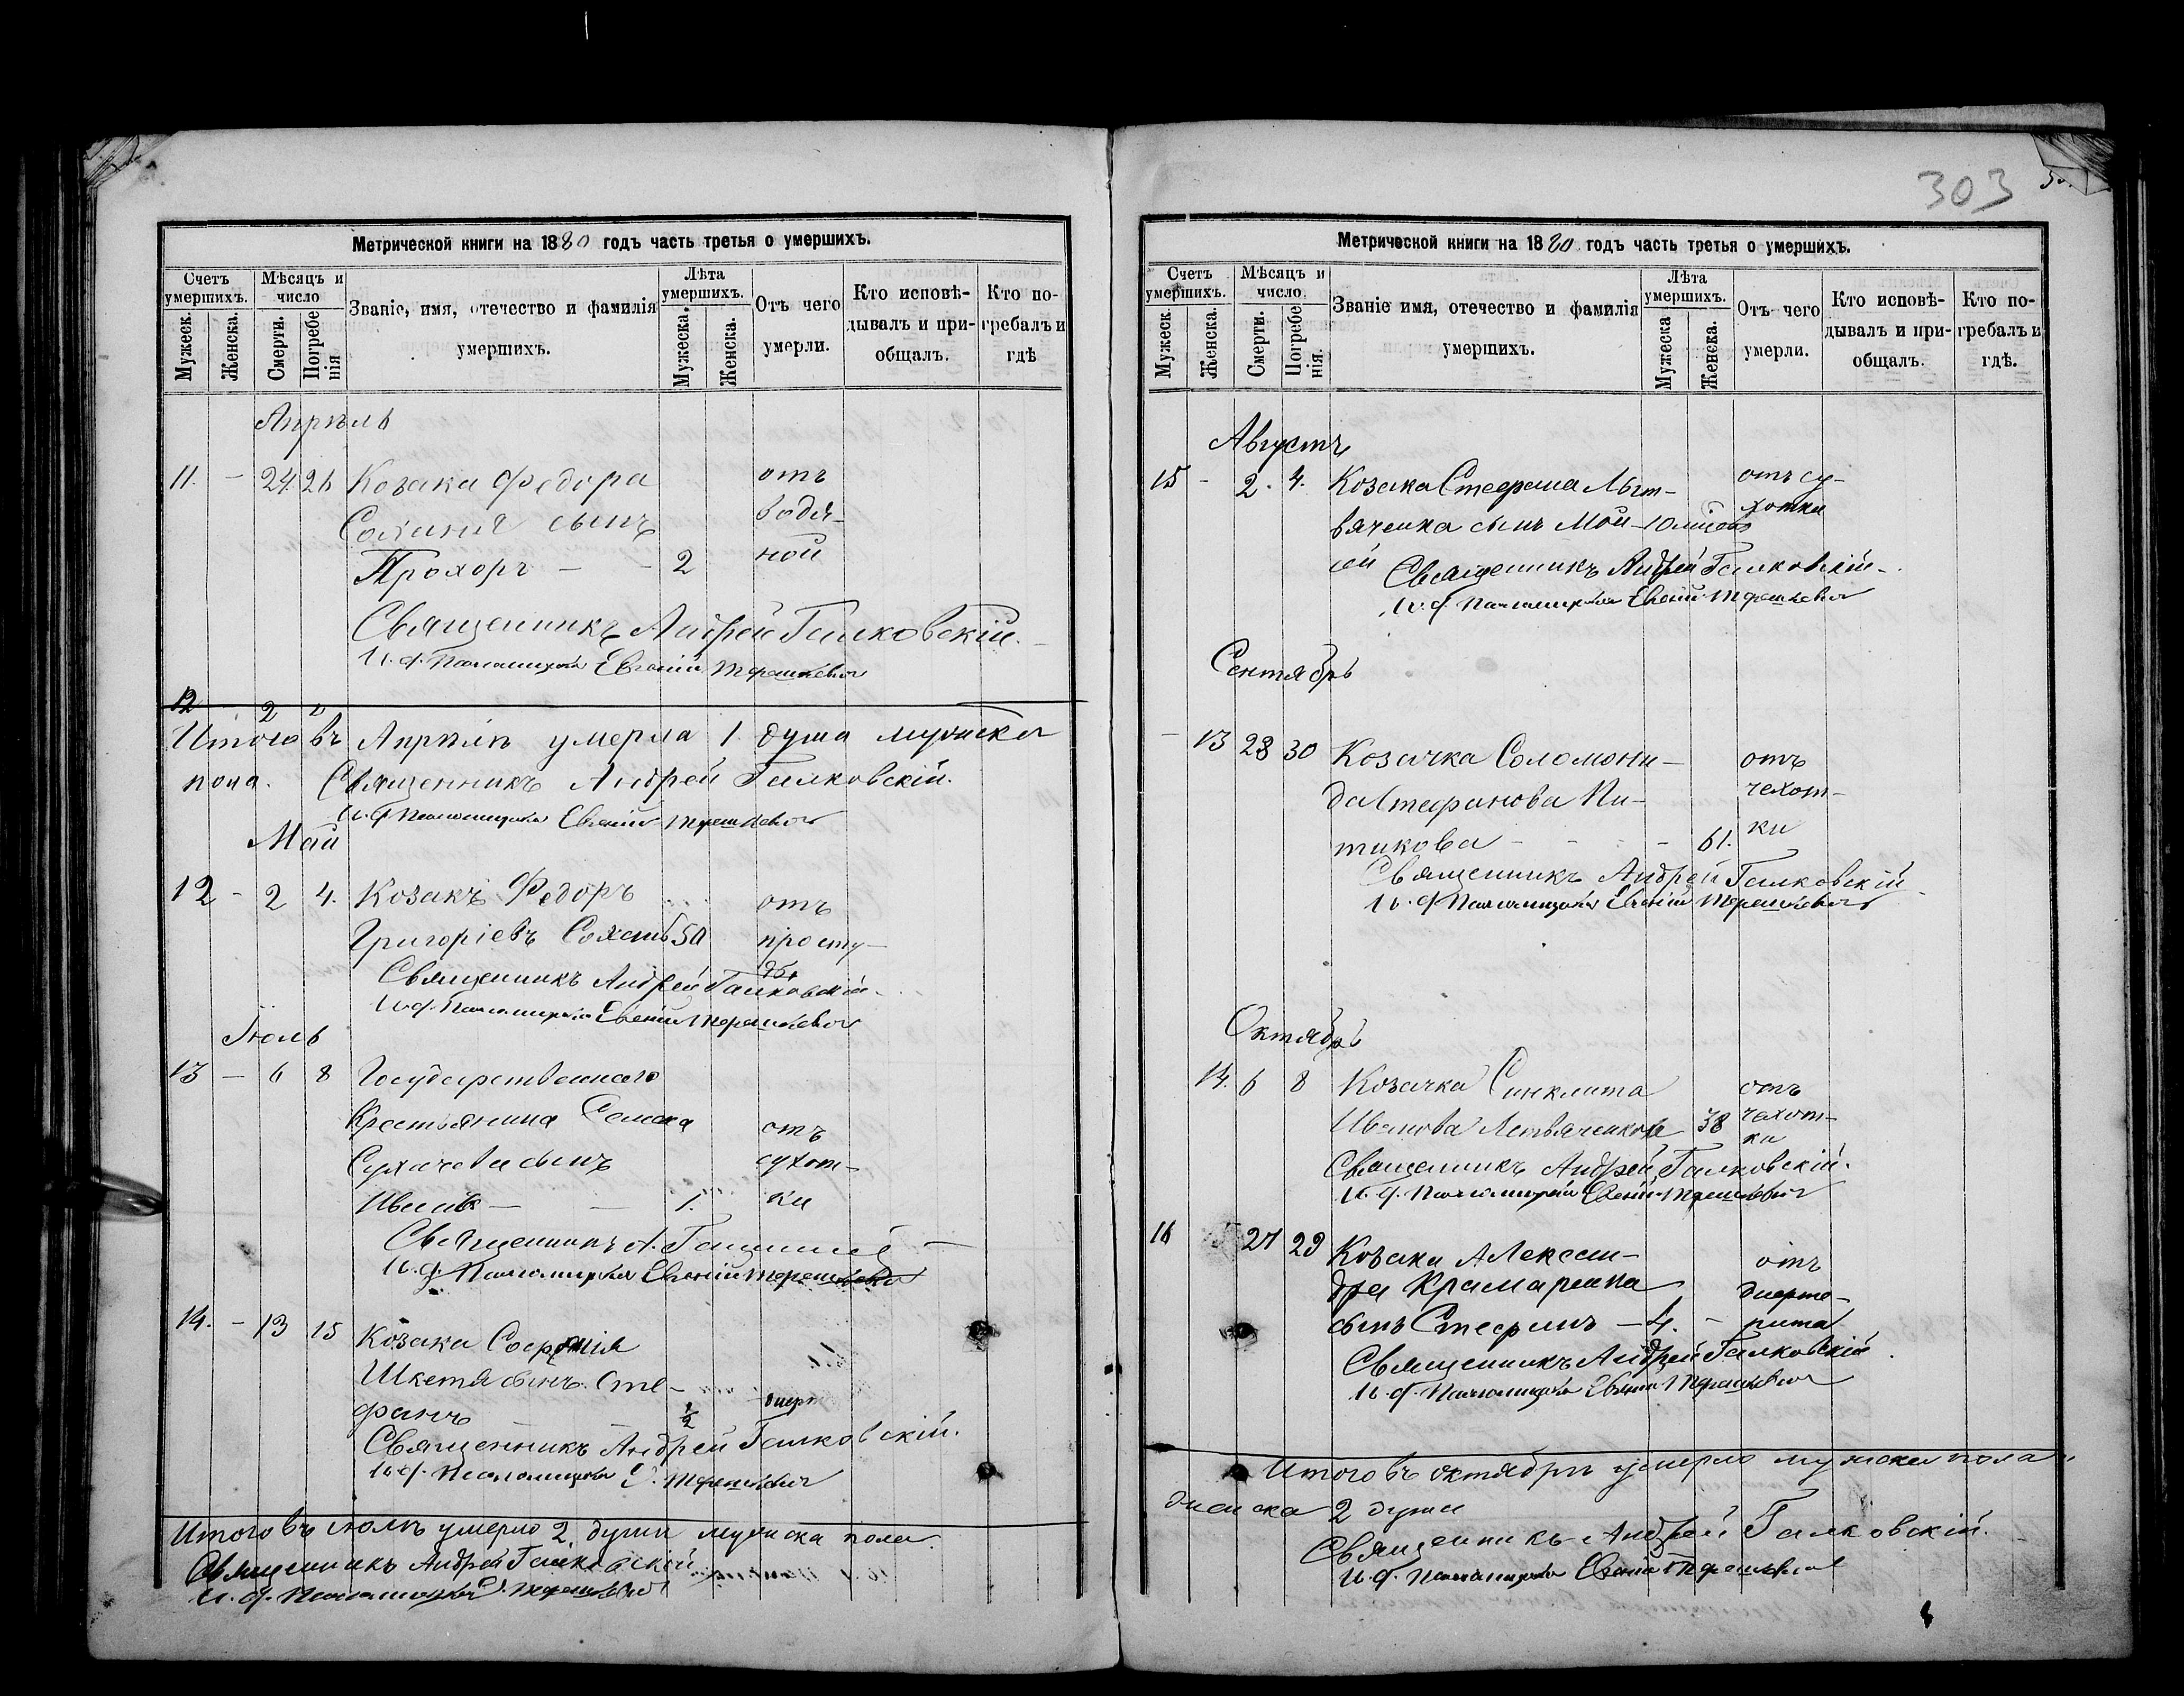 Метрической книги на 1880 годъ часть третья о умершихъ.
Счетъ умершихъ.
Мужеск.
Женска.
Мѣсяцъ и число
Смерти.
Погребенія
Званіе, имя, отечество и фамилія умершихъ.
Лѣта умершихъ.
Мужеска.
Женска.
Отъ чего умерли.
Кто исповѣдывалъ и приобщалъ.
Кто погребалъ и гдѣ
Апрѣль
11. - 24. 26 Козака Федора отъ
сынъ водя-
Прохоръ - - 2 ной
Священникъ Андрей Галковскій.
И. д. Псаломщика Евгеній Терешкевич
12 - 2
Итого въ Апрѣлѣ умерла 1 душа мужска
пола. Священникъ Андрей Галковскій.
И. д. Псаломщика Евгеній Терешкевич
Май
12 - 2 4. Козакъ Федоръ отъ
Григоріевъ 50 просту-
ды
Священникъ Андрей Галковскій.
И. д. Псаломщика Евгеній Терешкевич
Іюль
13 - 6 8 Государственнаго
Крестьянина отъ
Сухачева сынъ сухот-
Иванъ - - 1. ки
Священникъ А.
И. д. Псаломщика Евгеній Терешкевич
14. - 13 15 Козака Софронія
Шкетя сынъ Сте-
фанъ ½
Священникъ Андрей Галковскій.
И. д. Псаломщика Е. Терешкевич
Итого въ іюлѣ умерло 2 души мужска пола.
Священникъ Андрей Галковскій
И. д. Псаломщика Е. Терешкевич
303
Метрической книги на 1880 годъ часть третья о умершихъ.
Счетъ умершихъ.
Мужеск.
Женска.
Мѣсяцъ и число.
Смерти.
Погребенія.
Званіе имя, отечество и фамилія умершихъ.
Лѣта умершихъ.
Мужеска
Женска.
Отъ чего умерли.
Кто исповѣдывалъ и приобщалъ.
Кто погребалъ и гдѣ.
Августъ
15 - 2. 4. Козака Стефана отъ су-
сынъ Мои- 10 хотки
сей Священникъ Андрей Галковскій.
И. д. Псаломщика Евгеній Терешкевич
Сентябрь
- 13 28 30 Козачка Соломони- отъ
да Стефанова Пи- чехот-
тикова - - - 61. ки
Священникъ Андрей Галковскій
И. д. Псаломщика Евгеній Терешкевич
Октябрь
14. 6 8 Козачка Синклита отъ
Иванова 38 чахот-
ки
Священникъ Андрей Галковскій.
И. д. Псаломщика Евгеній Терешкевич
16 27 29 Козака Алексан- отъ
дра Крамаренка дифте-
сынъ Стефанъ - 4. - рита
Священникъ Андрей Галковскій.
И. д. Псаломщика Евгеній Терешкевич
Итого въ октябрѣ умерло мужска пола
2 души
Священникъ Андрей Галковскій.
И. д. Псаломщика Евгеній Терешкевич